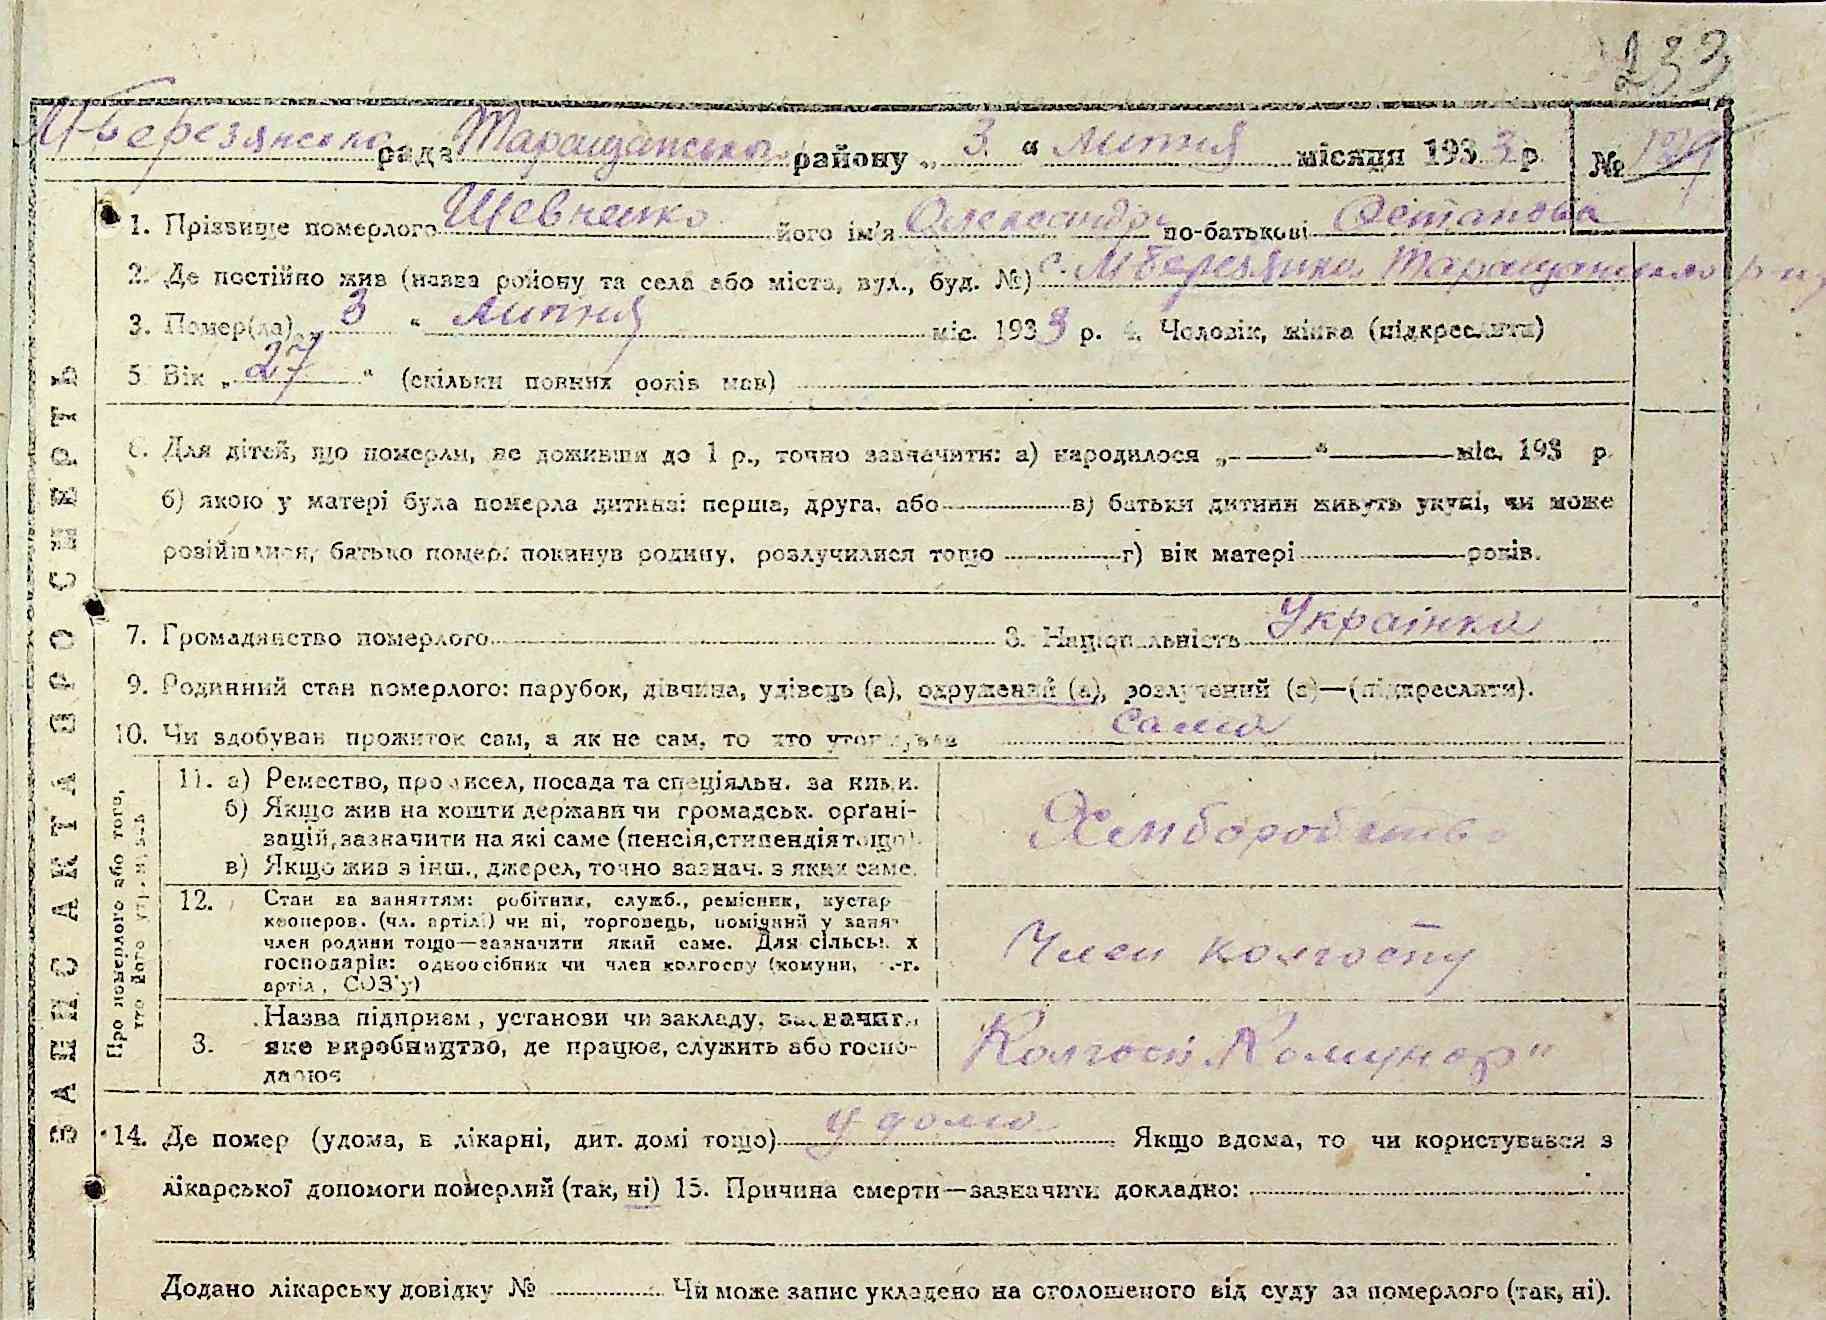 233
М-Березянська рада Таращанського району „ 3 “ липня місяця 1933 р № 129
1. Прізвище померлого Шевченко його ім'я Олександра по-батькові Остапова
2. Де постійно жив (назва району та села або міста, вул., буд. №) с. М Березянка Таращанського р-ну
3. Помер(ла) „ 3 “ липня міс. 1933 р. 4. Чоловік, жінка (підкреслити)
5 Вік „ 27 “ (скільки повних років мав)
6. Для дітей, що померли, не доживши до 1 р., точно зазначити: а) народилося „ “ міс. 193 р.
б) якою у матері була померла дитина: перша, друга, або в) батьки дитини живуть укупі, чи може
розійшлися, батько помер, покинув родину, розлучилися тощо г) вік матері років.
7. Громадянство померлого 8. Національність Українка
9. Родинний стан померлого: парубок, дівчина, удівець (а), одружений (а), розлучений (а)—(підкреслити).
10. Чи здобував прожиток сам, а як не сам, то хто утримував сама
ЗАПИС АКТА ПРО СМЕРТЬ
Про померлого або того, хто його утримував
11. а) Ремество, промисел, посада та спеціяльн. за книж.
б) Якщо жив на кошти держави чи громадськ. орґані-
зацій, зазначити на які саме (пенсія, стипендія тощо).
в) Якщо жив з інш., джерел, точно зазнач. з яких саме.
Хліборобство
12. Стан за заняттям: робітник, служб., ремісник, кустар
кооперов. (чл. артілі) чи ні, торговець, помічний у заня-
член родини тощо—зазначити який саме. Для сільськ х
господарів: одноосібник чи член колгоспу (комуни, с.-г.
артіл, СОЗ'у)
Член колгоспу
3. Назва підприєм, установи чи закладу, зазначити
яке виробництво, де працює, служить або госпо-
дарює
Колгосп „Комунар“
14. Де помер (удома, в лікарні, дит. домі тощо) у дома. Якщо вдома, то чи користувався з
лікарської допомоги померлий (так, ні) 15. Причина смерти—зазначити докладно:
Додано лікарську довідку № Чи може запис укладено на оголошеного від суду за померлого (так, ні).